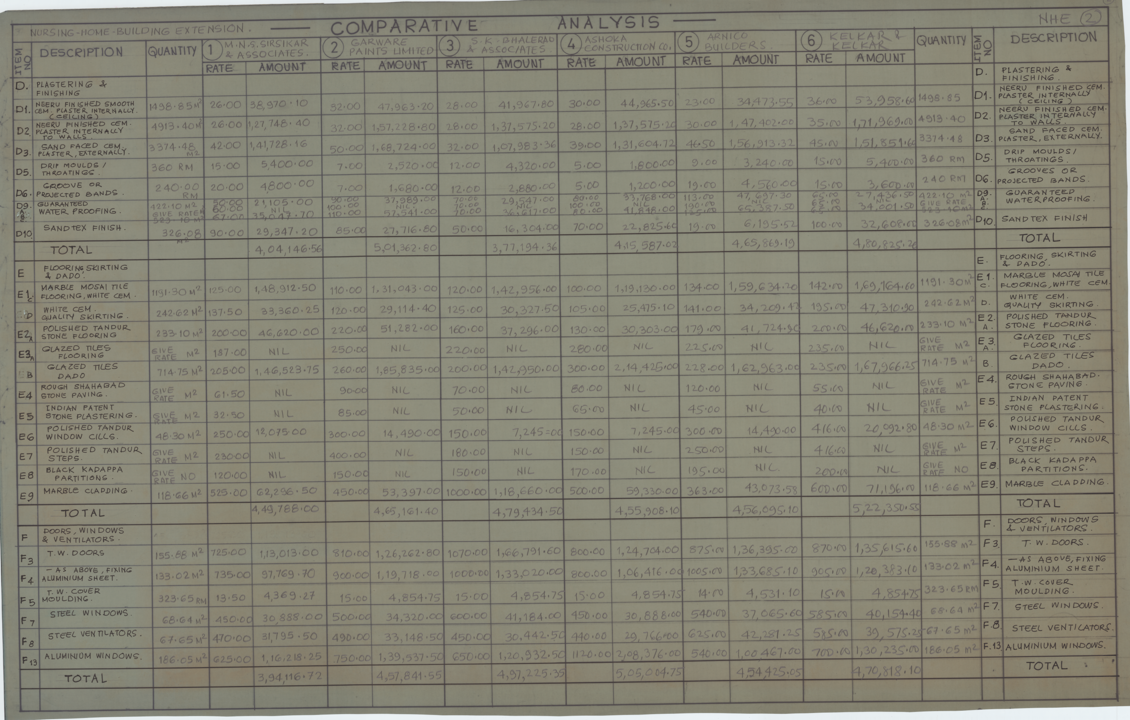 NURSING-HOME-BUILDING EXTENSION. COMPARATIVE ANALYSIS NHE (2)
ITEM NO DESCRIPTION QUANTITY 1 M.N.S. SIRSIKAR & ASSOCIATES. 2 GARWARE PAINTS LIMITED 3 S.K. & ASSOCIATES. 4 ASHOKA CONSTRUCTION CO. 5 ARNICO BUILDERS 6 KELKAR & KELKAR QUANTITY ITEM NO DESCRIPTION
RATE AMOUNT RATE AMOUNT RATE AMOUNT RATE AMOUNT RATE AMOUNT RATE AMOUNT
D. PLASTERING & FINISHING D. PLASTERING & FINISHING
D1. NEERU FINISHED SMOOTH CEM. PLASTER INTERNALLY (CEILING) 1498.85 26.00 38,970.10 32.00 47,963.20 28.00 41,967.80 30.00 44,965.50 23.00 34,473.55 36.00 53,958.60 1498.85 D1. NEERU FINISHED CEM. PLASTER INTERNALLY (CEILING)
D2 NEERU FINISHED CEM. PLASTER INTERNALLY TO WALLS. 4913.40 26.00 1,27,748.40 32.00 1,57,228.80 28.00 1,37,575.20 28.00 1,37,575.20 30.00 1,47,402.00 35.00 1,71,969.00 4913.40 D2. NEERU FINISHED CEM. PLASTER INTERNALLY TO WALLS
D3. SAND FACED CEM. PLASTER, EXTERNALLY. 3374.48 M2 42.00 1,41,728.16 50.00 1,68,724.00 32.00 1,07,983.36 39.00 1,31,604.72 46.50 1,56,913.32 45.00 1,51,851.60 3374.48 D3. SAND FACED CEM. PLASTER, EXTERNALLY.
D5. DRIP MOULDS / THROATINGS. 360 RM 15.00 5,400.00 7.00 2,520.00 12.00 4,320.00 5.00 1,800.00 9.00 3,240.00 15.00 5,400.00 360 RM D5. DRIP MOULDS / THROATINGS.
D6. GROOVE OR PROJECTED BANDS. 240.00 RM 20.00 4,800.00 7.00 1,680.00 12.00 2,880.00 5.00 1,200.00 19.00 4,560.00 15.00 3,600.00 240 RM D6. GROOVES OR PROJECTED BANDS.
D9. GUARANTEED WATER PROOFING. D9. GUARANTEED WATERPROOFING.
D10 SANDTEX FINISH. 326.08 M2 90.00 29,347.20 85.00 27,716.80 50.00 16,304.00 70.00 22,825.60 19.00 6,195.52 100.00 32,608.00 326.08 M2 D10 SANDTEX FINISH
TOTAL 4,04,146.56 5,01,362.80 3,77,194.36 4,15,587.02 4,65,869.19 4,80,825.20 TOTAL
E FLOORING, SKIRTING & DADO. E. FLOORING, SKIRTING & DADO.
E1 C MARBLE MOSAI TILE FLOORING, WHITE CEM. 1191.30 M2 125.00 1,48,912.50 110.00 1,31,043.00 120.00 1,42,956.00 100.00 1,19,130.00 134.00 1,59,634.20 142.00 1,69,164.60 1191.30 M2 E1 C. MARBLE MOSAI TILE FLOORING, WHITE CEM.
D WHITE CEM. QUALITY SKIRTING. 242.62 M2 137.50 33,360.25 120.00 29,114.40 125.00 30,327.50 105.00 25,475.10 141.00 34,209.42 195.00 47,310.90 242.62 M2 D. WHITE CEM. QUALITY SKIRTING.
E2 A POLISHED TANDUR STONE FLOORING 233.10 M2 200.00 46,620.00 220.00 51,282.00 160.00 37,296.00 130.00 30,303.00 179.00 41,724.90 200.00 46,620.00 233.10 M2 E2 A. POLISHED TANDUR STONE FLOORING.
E3 A GLAZED TILES FLOORING GIVE RATE M2 187.00 NIL 250.00 NIL 220.00 NIL 280.00 NIL 225.00 NIL 235.00 NIL GIVE RATE M2 E3 A. GLAZED TILES FLOORING.
B GLAZED TILES DADO 714.75 M2 205.00 1,46,523.75 260.00 1,85,835.00 200.00 1,42,950.00 300.00 2,14,425.00 228.00 1,62,963.00 235.00 1,67,966.25 714.75 M2 B GLAZED TILES DADO.
E4 ROUGH SHAHABAD STONE PAVING. GIVE RATE M2 61.50 NIL 90.00 NIL 70.00 NIL 80.00 NIL 120.00 NIL 55.00 NIL GIVE RATE M2 E4. ROUGH SHAHABAD STONE PAVING
E5 INDIAN PATENT STONE PLASTERING. GIVE RATE M2 32.50 NIL 85.00 NIL 50.00 NIL 65.00 NIL 45.00 NIL 40.00 NIL GIVE RATE M2 E5. INDIAN PATENT STONE PLASTERING.
E6 POLISHED TANDUR WINDOW CILLS. 48.30 M2 250.00 12,075.00 300.00 14,490.00 150.00 7,245.00 150.00 7,245.00 300.00 14,490.00 416.00 20,092.80 48.30 M2 E6. POLISHED TANDUR WINDOW CILLS.
E7 POLISHED TANDUR STEPS. GIVE RATE M2 230.00 NIL 400.00 NIL 180.00 NIL 150.00 NIL 250.00 NIL 416.00 NIL GIVE RATE M2 E7 POLISHED TANDUR STEPS.
E8 BLACK KADAPPA PARTITIONS. GIVE RATE NO 120.00 NIL 150.00 NIL 150.00 NIL 170.00 NIL 195.00 NIL 200.00 NIL GIVE RATE NO E8 BLACK KADAPPA PARTITIONS.
E9 MARBLE CLADDING. 118.66 M2 525.00 62,296.50 450.00 53,397.00 1000.00 1,18,660.00 500.00 59,330.00 363.00 43,073.58 600.00 71,196.00 118.66 M2 E9 MARBLE CLADDING.
TOTAL 4,49,788.00 4,65,161.40 4,79,434.50 4,55,908.10 4,56,095.10 5,22,350.55 TOTAL
F DOORS, WINDOWS & VENTILATORS. F. DOORS, WINDOWS & VENTILATORS.
F3 T.W. DOORS 155.88 M2 725.00 1,13,013.00 810.00 1,26,262.80 1070.00 1,66,791.60 800.00 1,24,704.00 875.00 1,36,395.00 870.00 1,35,615.60 155.88 M2 F3. T.W. DOORS.
F4 — AS ABOVE, FIXING ALUMINIUM SHEET. 133.02 M2 735.00 97,769.70 900.00 1,19,718.00 1000.00 1,33,020.00 800.00 1,06,416.00 1005.00 1,33,685.10 905.00 1,20,383.10 133.02 M2 F4. — AS ABOVE, FIXING ALUMINIUM SHEET.
F5 T.W. COVER MOULDING 323.65 RM 13.50 4,369.27 15.00 4,854.75 15.00 4,854.75 15.00 4,854.75 14.00 4,531.10 15.00 4,854.75 323.65 RM F5 T.W. COVER MOULDING.
F7 STEEL WINDOWS. 68.64 M2 450.00 30,888.00 500.00 34,320.00 600.00 41,184.00 450.00 30,888.00 540.00 37,065.60 585.00 40,154.40 68.64 M2 F7. STEEL WINDOWS.
F8 STEEL VENTILATORS. 67.65 M2 470.00 31,795.50 490.00 33,148.50 450.00 30,442.50 440.00 29,766.00 625.00 42,281.25 585.00 39,575.25 67.65 M2 F.8. STEEL VENTILATORS.
F13 ALUMINIUM WINDOWS. 186.05 M2 625.00 1,16,281.25 750.00 1,39,537.50 650.00 1,20,932.50 1120.00 2,08,376.00 540.00 1,00,467.00 700.00 1,30,235.00 186.05 M2 F.13 ALUMINIUM WINDOWS.
TOTAL 3,94,116.72 4,57,841.55 4,97,225.35 5,05,004.75 4,54,425.05 4,70,818.10 TOTAL